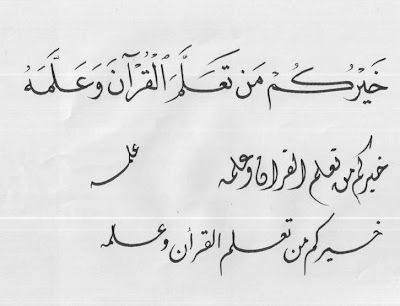 خَيْرُكُمْ مَن تَعَلَّمَ الْقُرْآنَ وَعَلَّمَهُ
خيركم من تعلم القران وعلمه علمه
خيركم من تعلم القرأن وعلمه